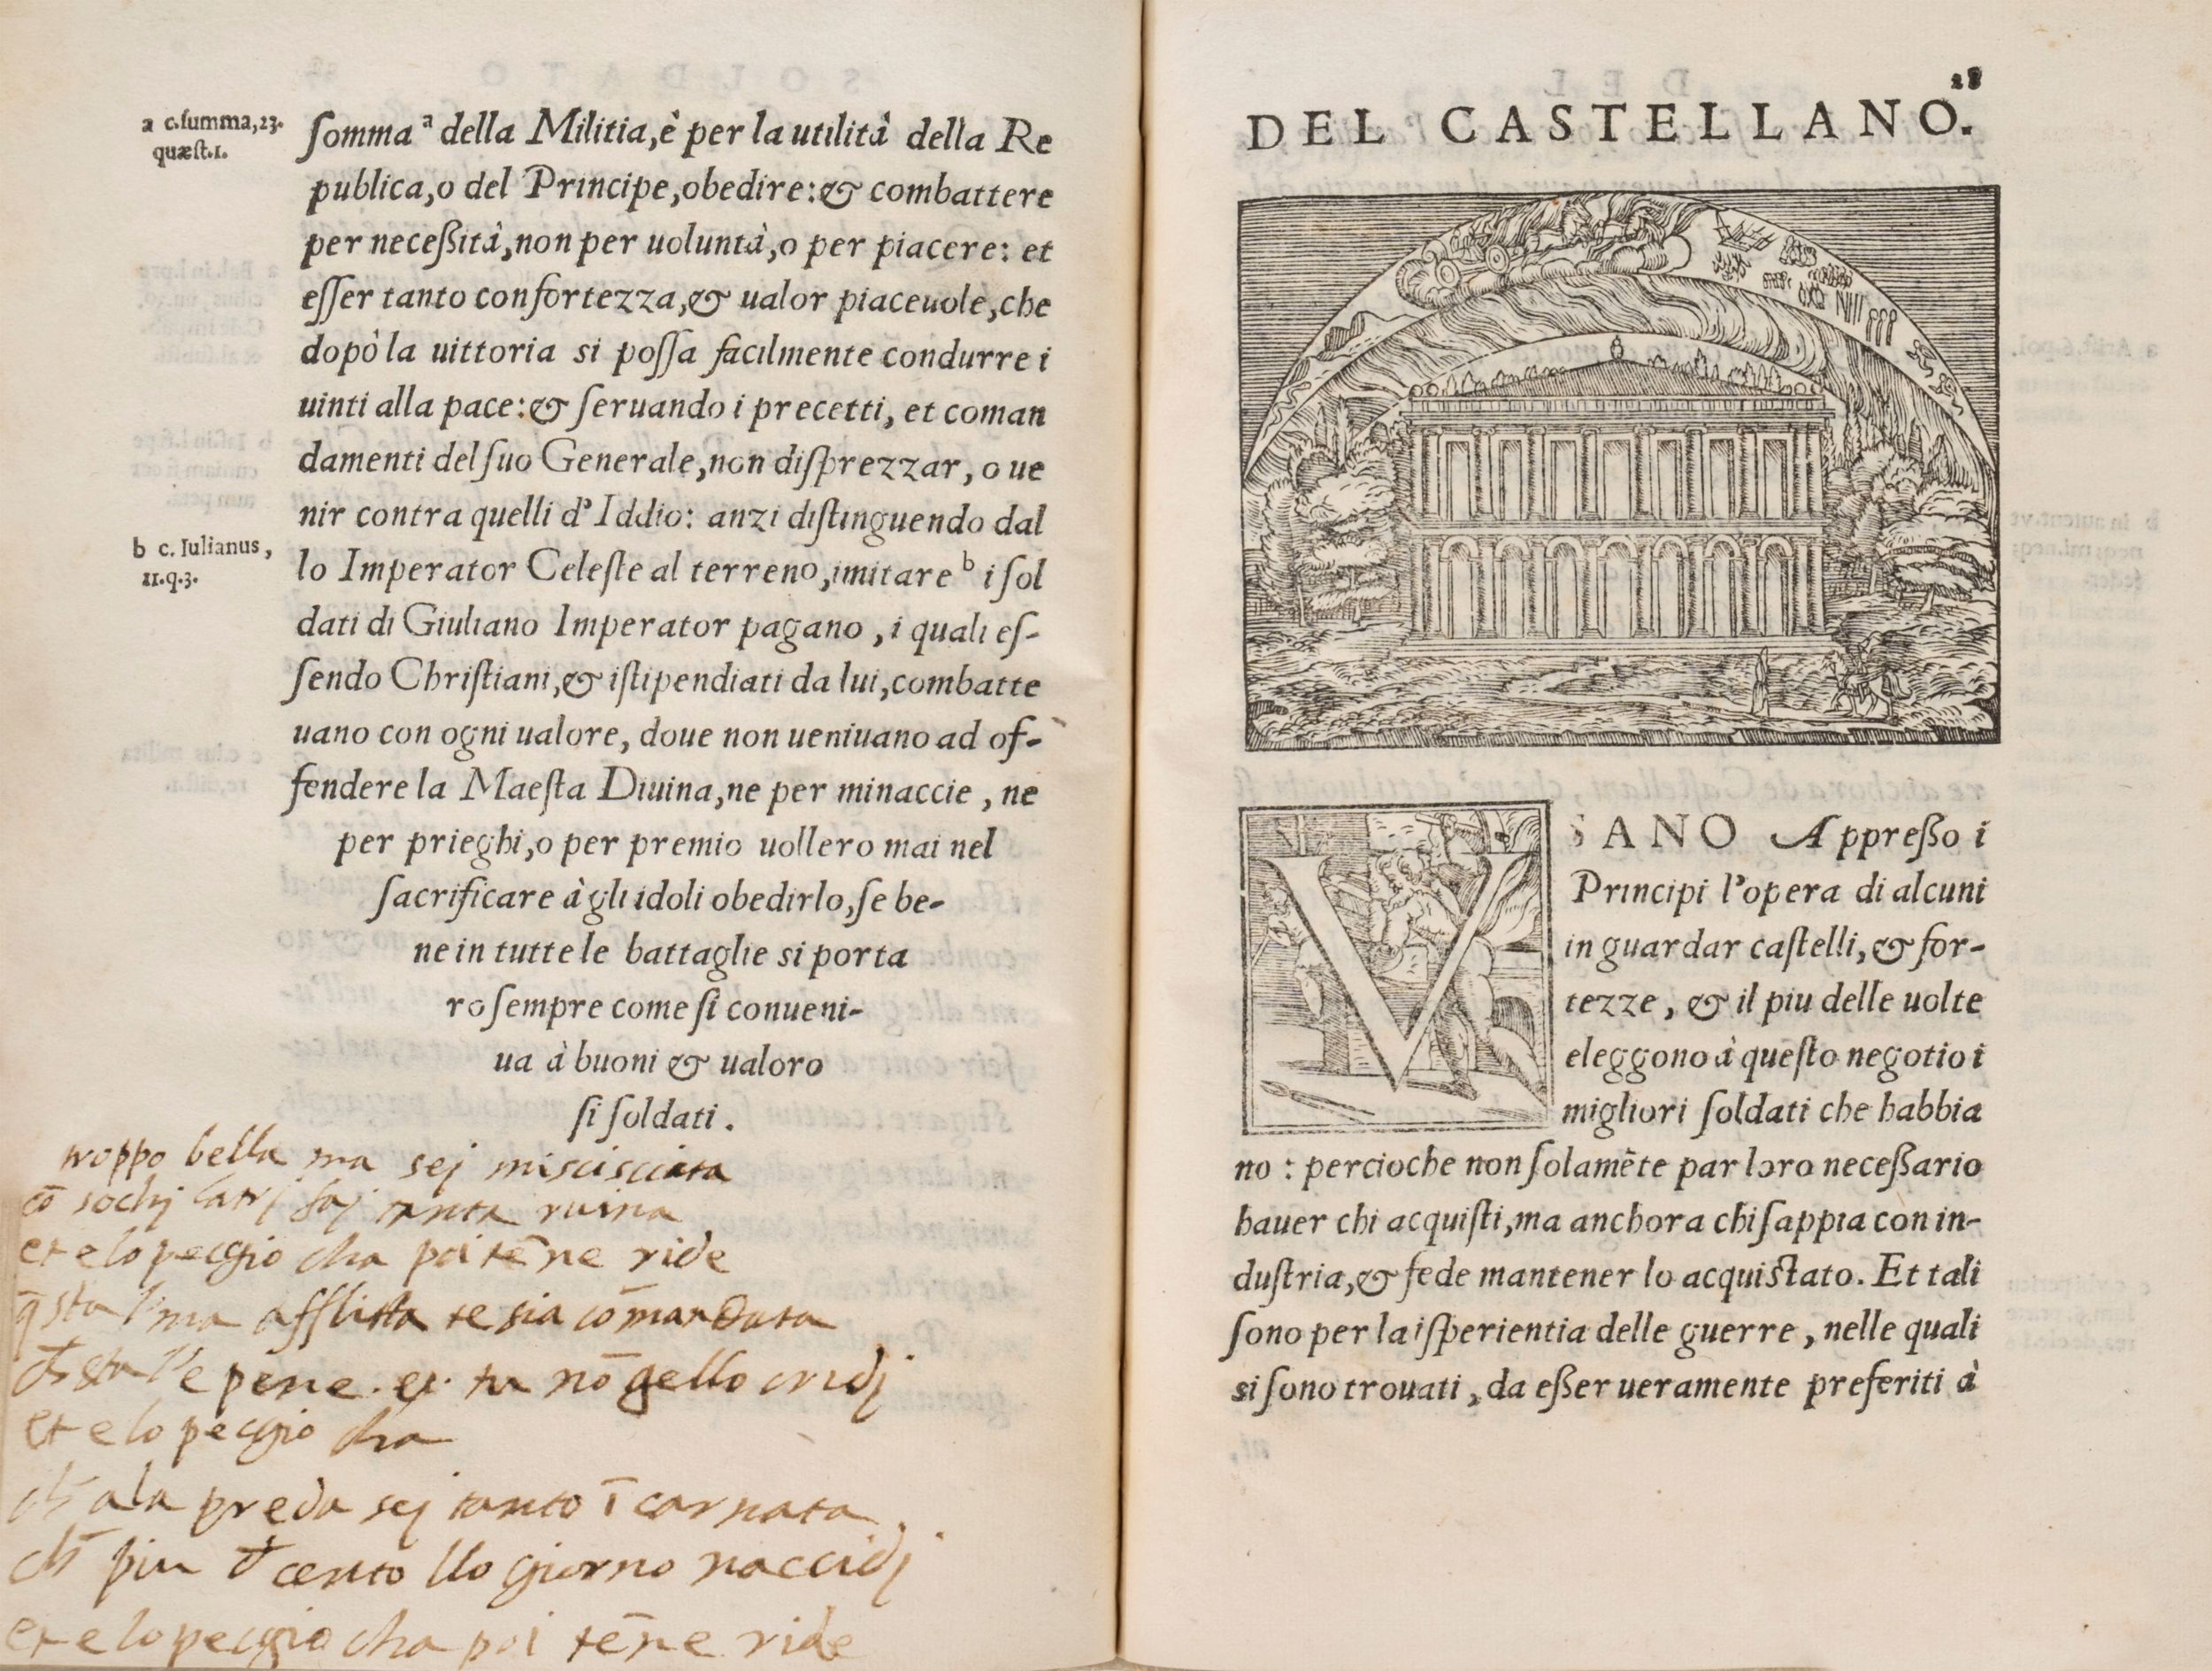 a c.ſumma,23.
quæſt.1.
ſomma a della Militia,è per la utilità della Re
publica,o del Principe,obedire:& combattere
per neceßità,non per uoluntà,o per piacere: et
eſſer tanto con fortezza,& ualor piaceuole,che
dopò la uittoria si poſſa facilmente condurre i
uinti alla pace:& ſeruando i precetti, et coman
damenti del ſuo Generale,non diſprezzar, o ue
nir contra quelli d'Iddio: anzi diſtinguendo dal
b c. Iulianus,
11.q.3.
lo Imperator Celeſte al terreno,imitare b i ſol
dati di Giuliano Imperator pagano, i quali eſ-
ſendo Chriſtiani,& iſtipendiati da lui,combatte
uano con ogni ualore, doue non ueniuano ad of-
fendere la Maeſta Diuina,ne per minaccie, ne
per prieghi,o per premio uollero mai nel
ſacrificare à gli idoli obedirlo,ſe be-
ne in tutte le battaglie si porta
ro ſempre come ſi conueni-
ua à buoni & ualoro
ſi ſoldati.
troppo bella ma sej miscisciata
cō sochj latrj faj tanta ruina
et e lo peggio cha poi tēne ride
afflitta te sia cōmandata
pene. et tu nō gello cridj
et e lo peggio cha
ala preda sej tanto ī carnata
piu cento llo giorno naccidj
et e lo peggio cha poi tēne ride
28
DEL CASTELLANO.
VSANO Appreßo i
Principi l'opera di alcuni
in guardar caſtelli,& for-
tezze, & il piu delle uolte
eleggono à queſto negotio i
migliori ſoldati che habbia
no: percioche non ſolamēte par loro neceßario
hauer chi acquiſti,ma anchora chi ſappia con in-
duſtria,& fede mantener lo acquiſtato. Et tali
ſono per la iſperientia delle guerre, nelle quali
si ſono trouati, da eßer ueramente preferiti à